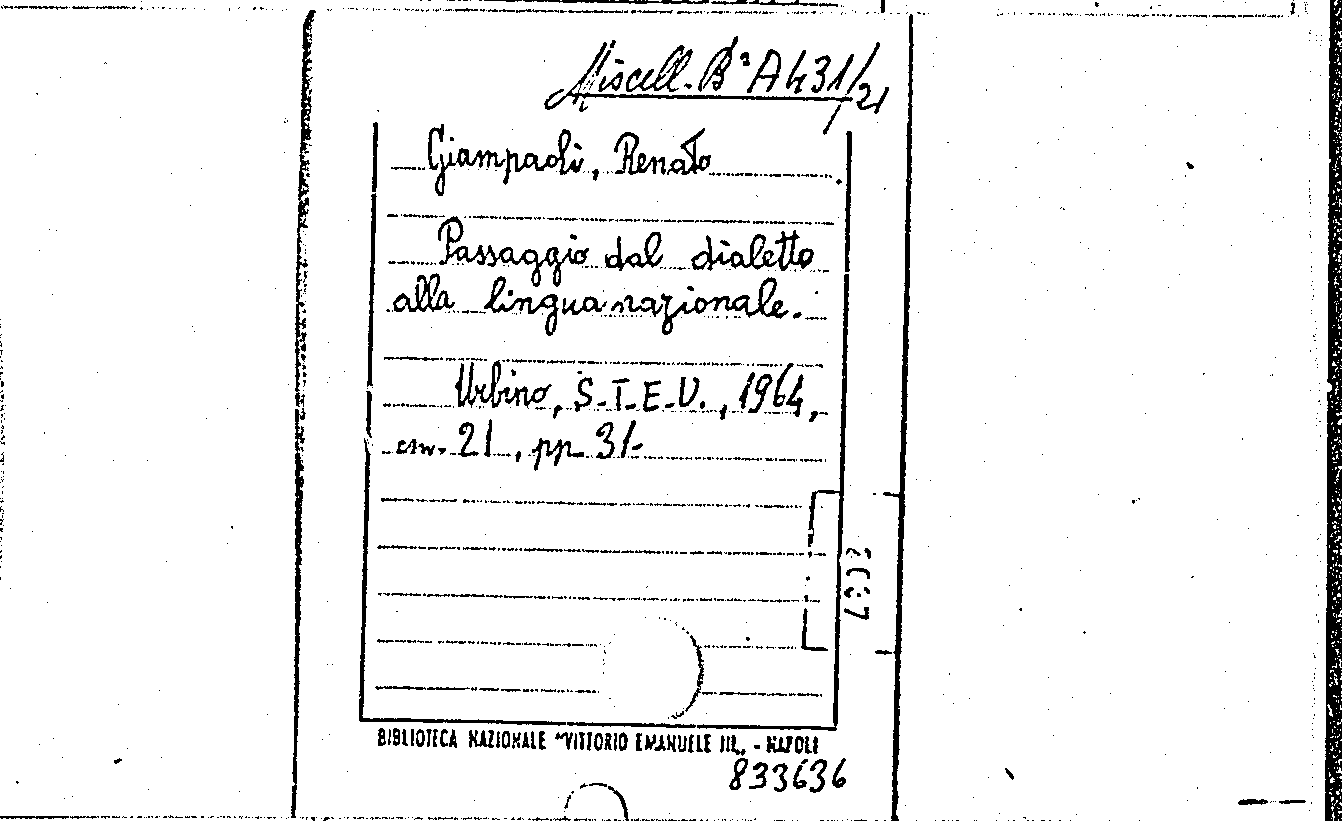 Miscell. B² A 431/21
Giampaoli, Renato
Passaggio dal dialetto
alla lingua nazionale.
Urbino, S.T.E.U., 1964,
cm. 21, pp. 31.
BIBLIOTECA NAZIONALE "VITTORIO EMANUELE III„ - NAPOLI
833636